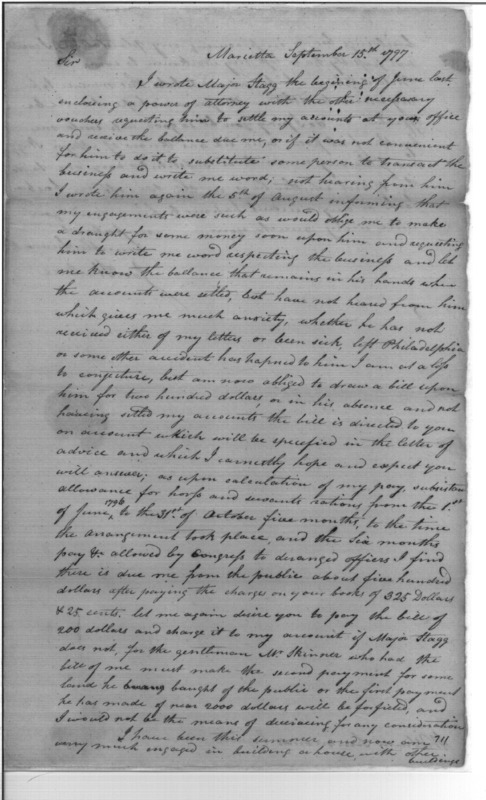 Marietta September 15.th 1797
Sir
I wrote Major Stagg the begining of June last
enclosing a power of attorney with the other necessary
vouchers requesting him to settle my accounts at your office
and receive the ballance due me, or if it was not convenient
for him to do it, to substitute some person to transact the
business and wrote me word; not hearing from him
I wrote him again the 5th of August informing that
my engagements were such as would oblige me to make
a draught for some money soon upon him and requesting
him to write me word respecting the business and let
me know the ballance that remains in his hands when
the accounts were setled, but have not heared from him
which gives me much anxiety, whether he has not
received either of my letters or been sick, left Philadelphia
or some other accident has hapned to him I am at a loss
to conjecture, but am now obliged to draw a bill upon
him for two hundred dollars, or in his absence and not
having setled my accounts the bill is directed to you
on account which will be specified in the letter of
advice and which I earnestly hope and expect you
will answer; as upon calculation of my pay, subsistence
allowance for horse and servants rations from the 1.st
of June 1796 to the 31st of October five months, to the time
the arangement took place, and the six months
pay &c allowed by Congress to deranged officers I find
there is due me from the public about five hundred
dollars after paying the charge on your books of 325 Dollars
& 25 cents. let me again desire you to pay the bill of
200 dollars and charge it to my account if Major Stagg
does not, for the gentleman Mr. Skinner who had the
bill of me must make the second payment for some
land he baught of the public or the first payment
he has made of near 2000 dollars will be forfieted, and
I would not be the means of deceiving for any consideration
I have been this summer and now am
very much engaged in building a house, with other
buildings
711